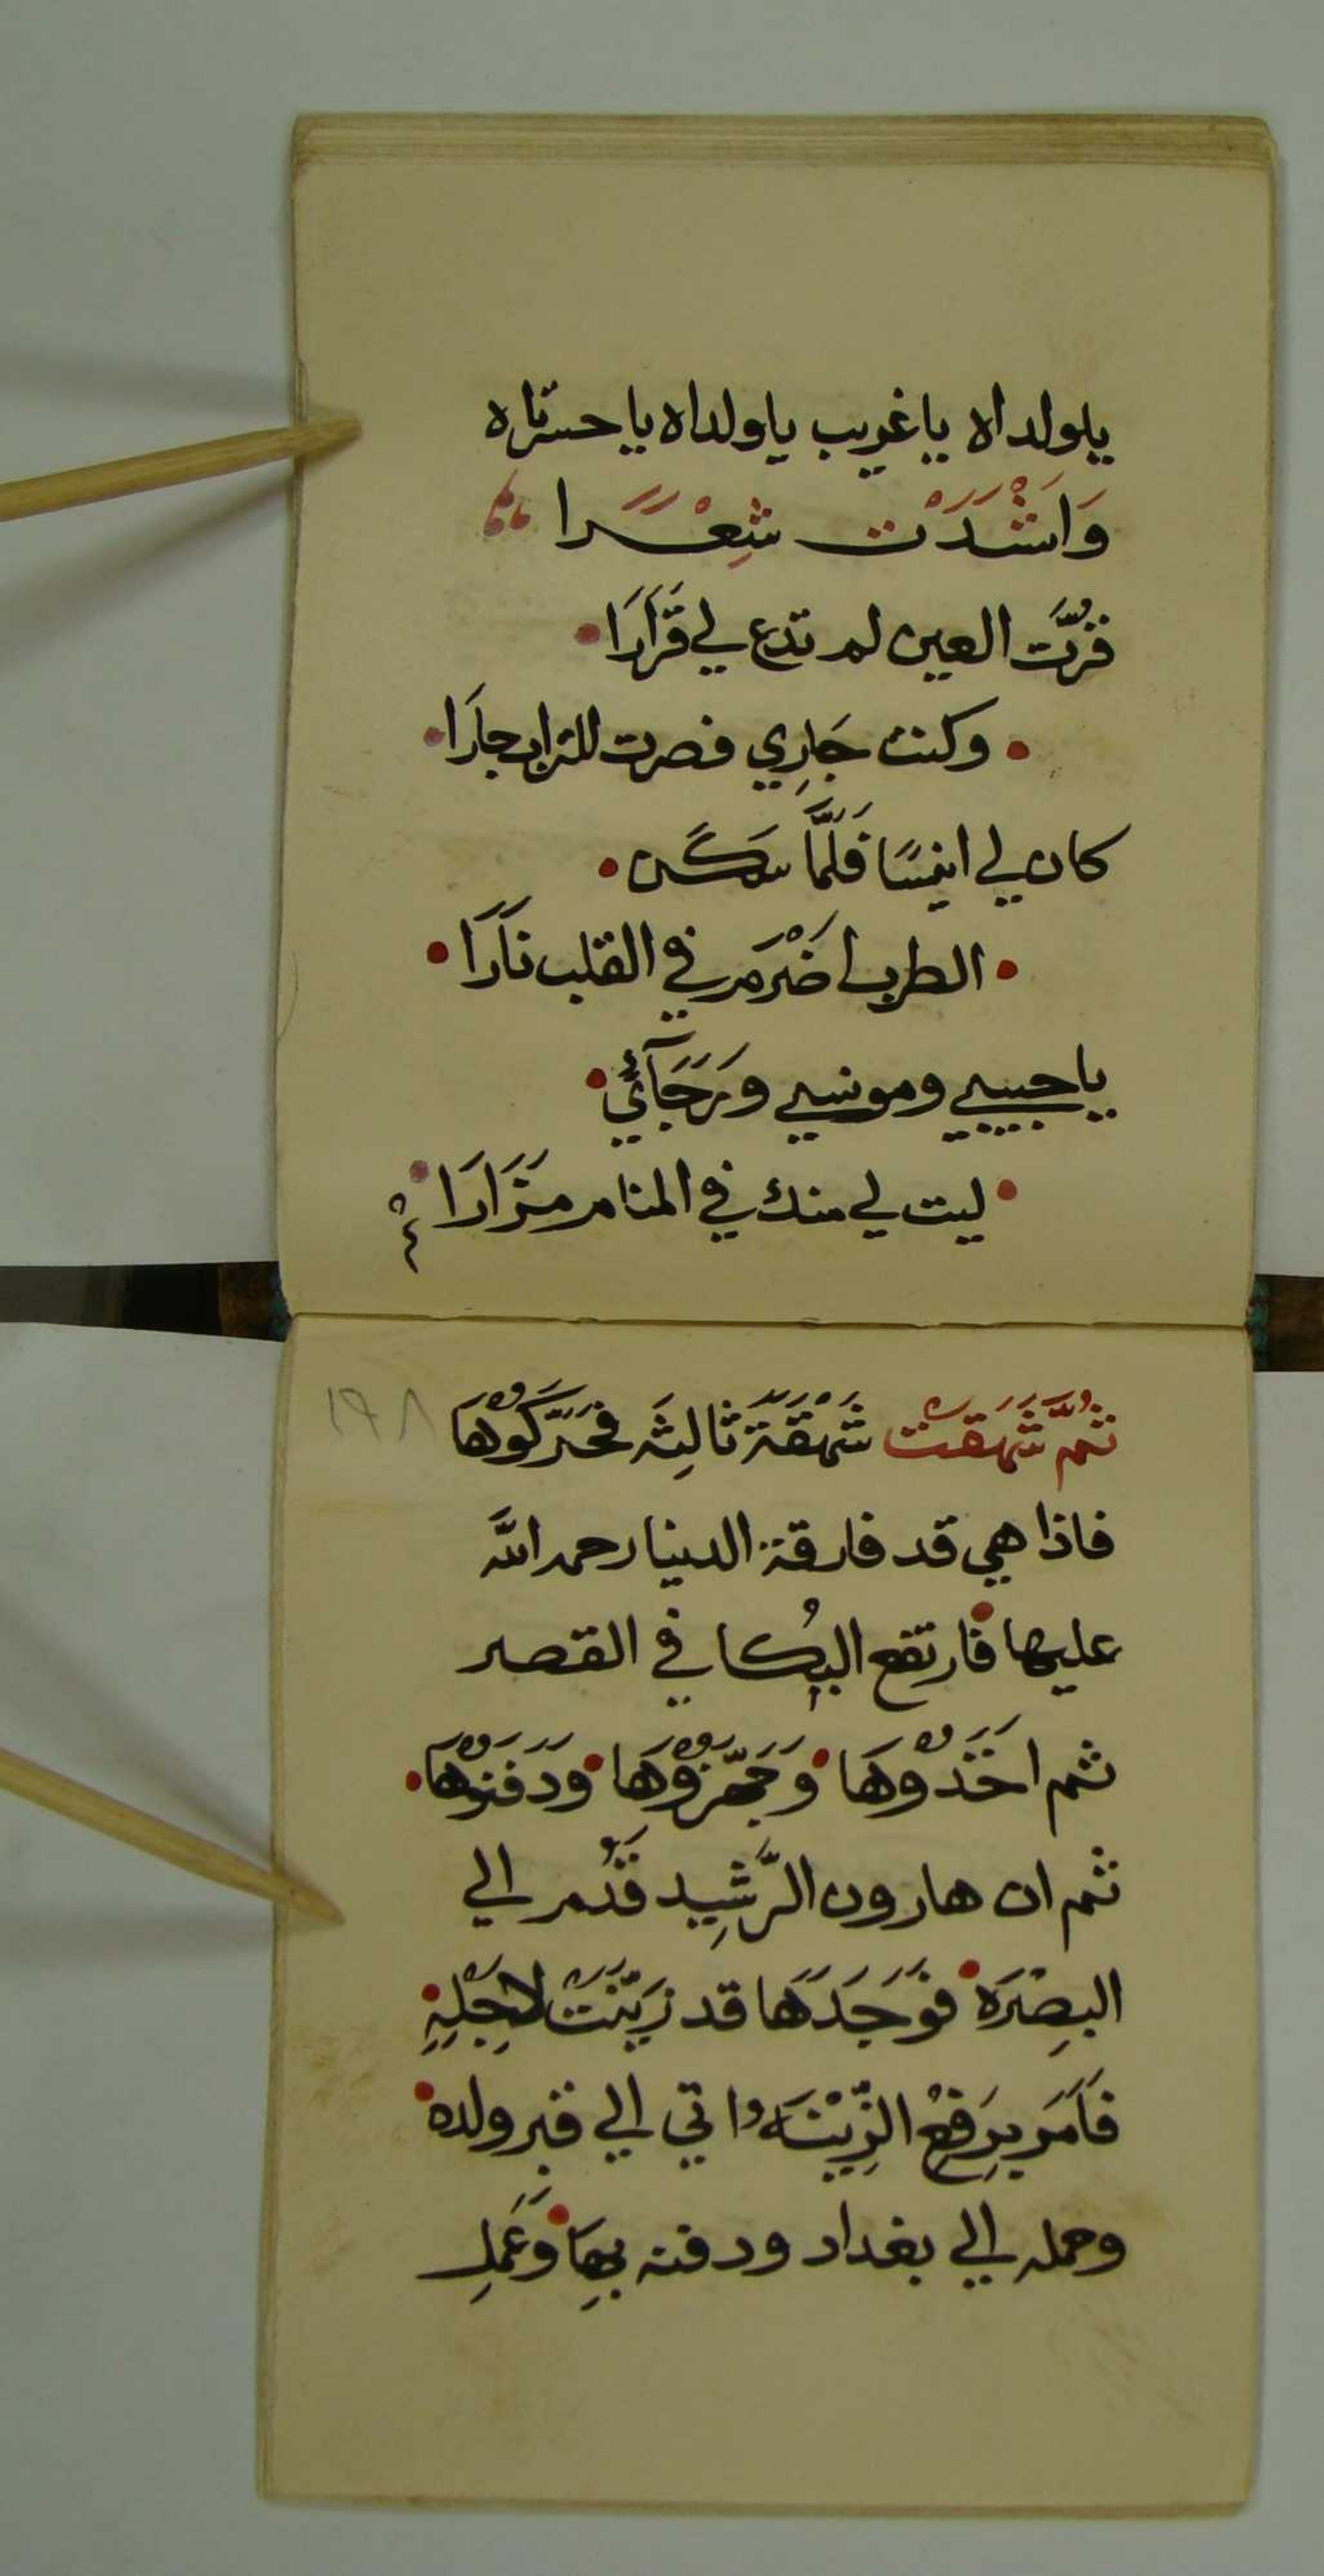 ياولداه ياغريب ياولداه ياحسرتاه
وَانْشَدَتْ شِعْرًا
قُرَّت العين لم تدع لي قَرَارَا
وكنت جَارِي فصرت للتراب جارَا
كان لي انيسًا فَلَمَّا سَكَن
الطرب اضْرَم في القلب نَارَا
ياحبيبي ومونسي ورَجَآئي
ليت لي منك في المنام مَزَارَا
١٩٨
ثُمَّ شَهَقَتْ شَهْقَةً ثالِثَه فَحَرَّكُوْهَا
فاذا هي قد فارقة الدنيا رحمه الله
عليها فارتفع البُكا في القصر
ثم اخَذُوْهَا وَجَهَّزُوْهَا وَدَفَنُوْهَا
ثم ان هارون الرَّشِيد قَدُم الي
البِصْرَة فَوَجَدَهَا قد زَيَّنَتْ لاجْلِهِ
فَاَمَر بِرَفعْ الزِّيْنَه واتي الي قبر ولده
وحمله الي بغداد ودفنه بِهَا وَعَمِل